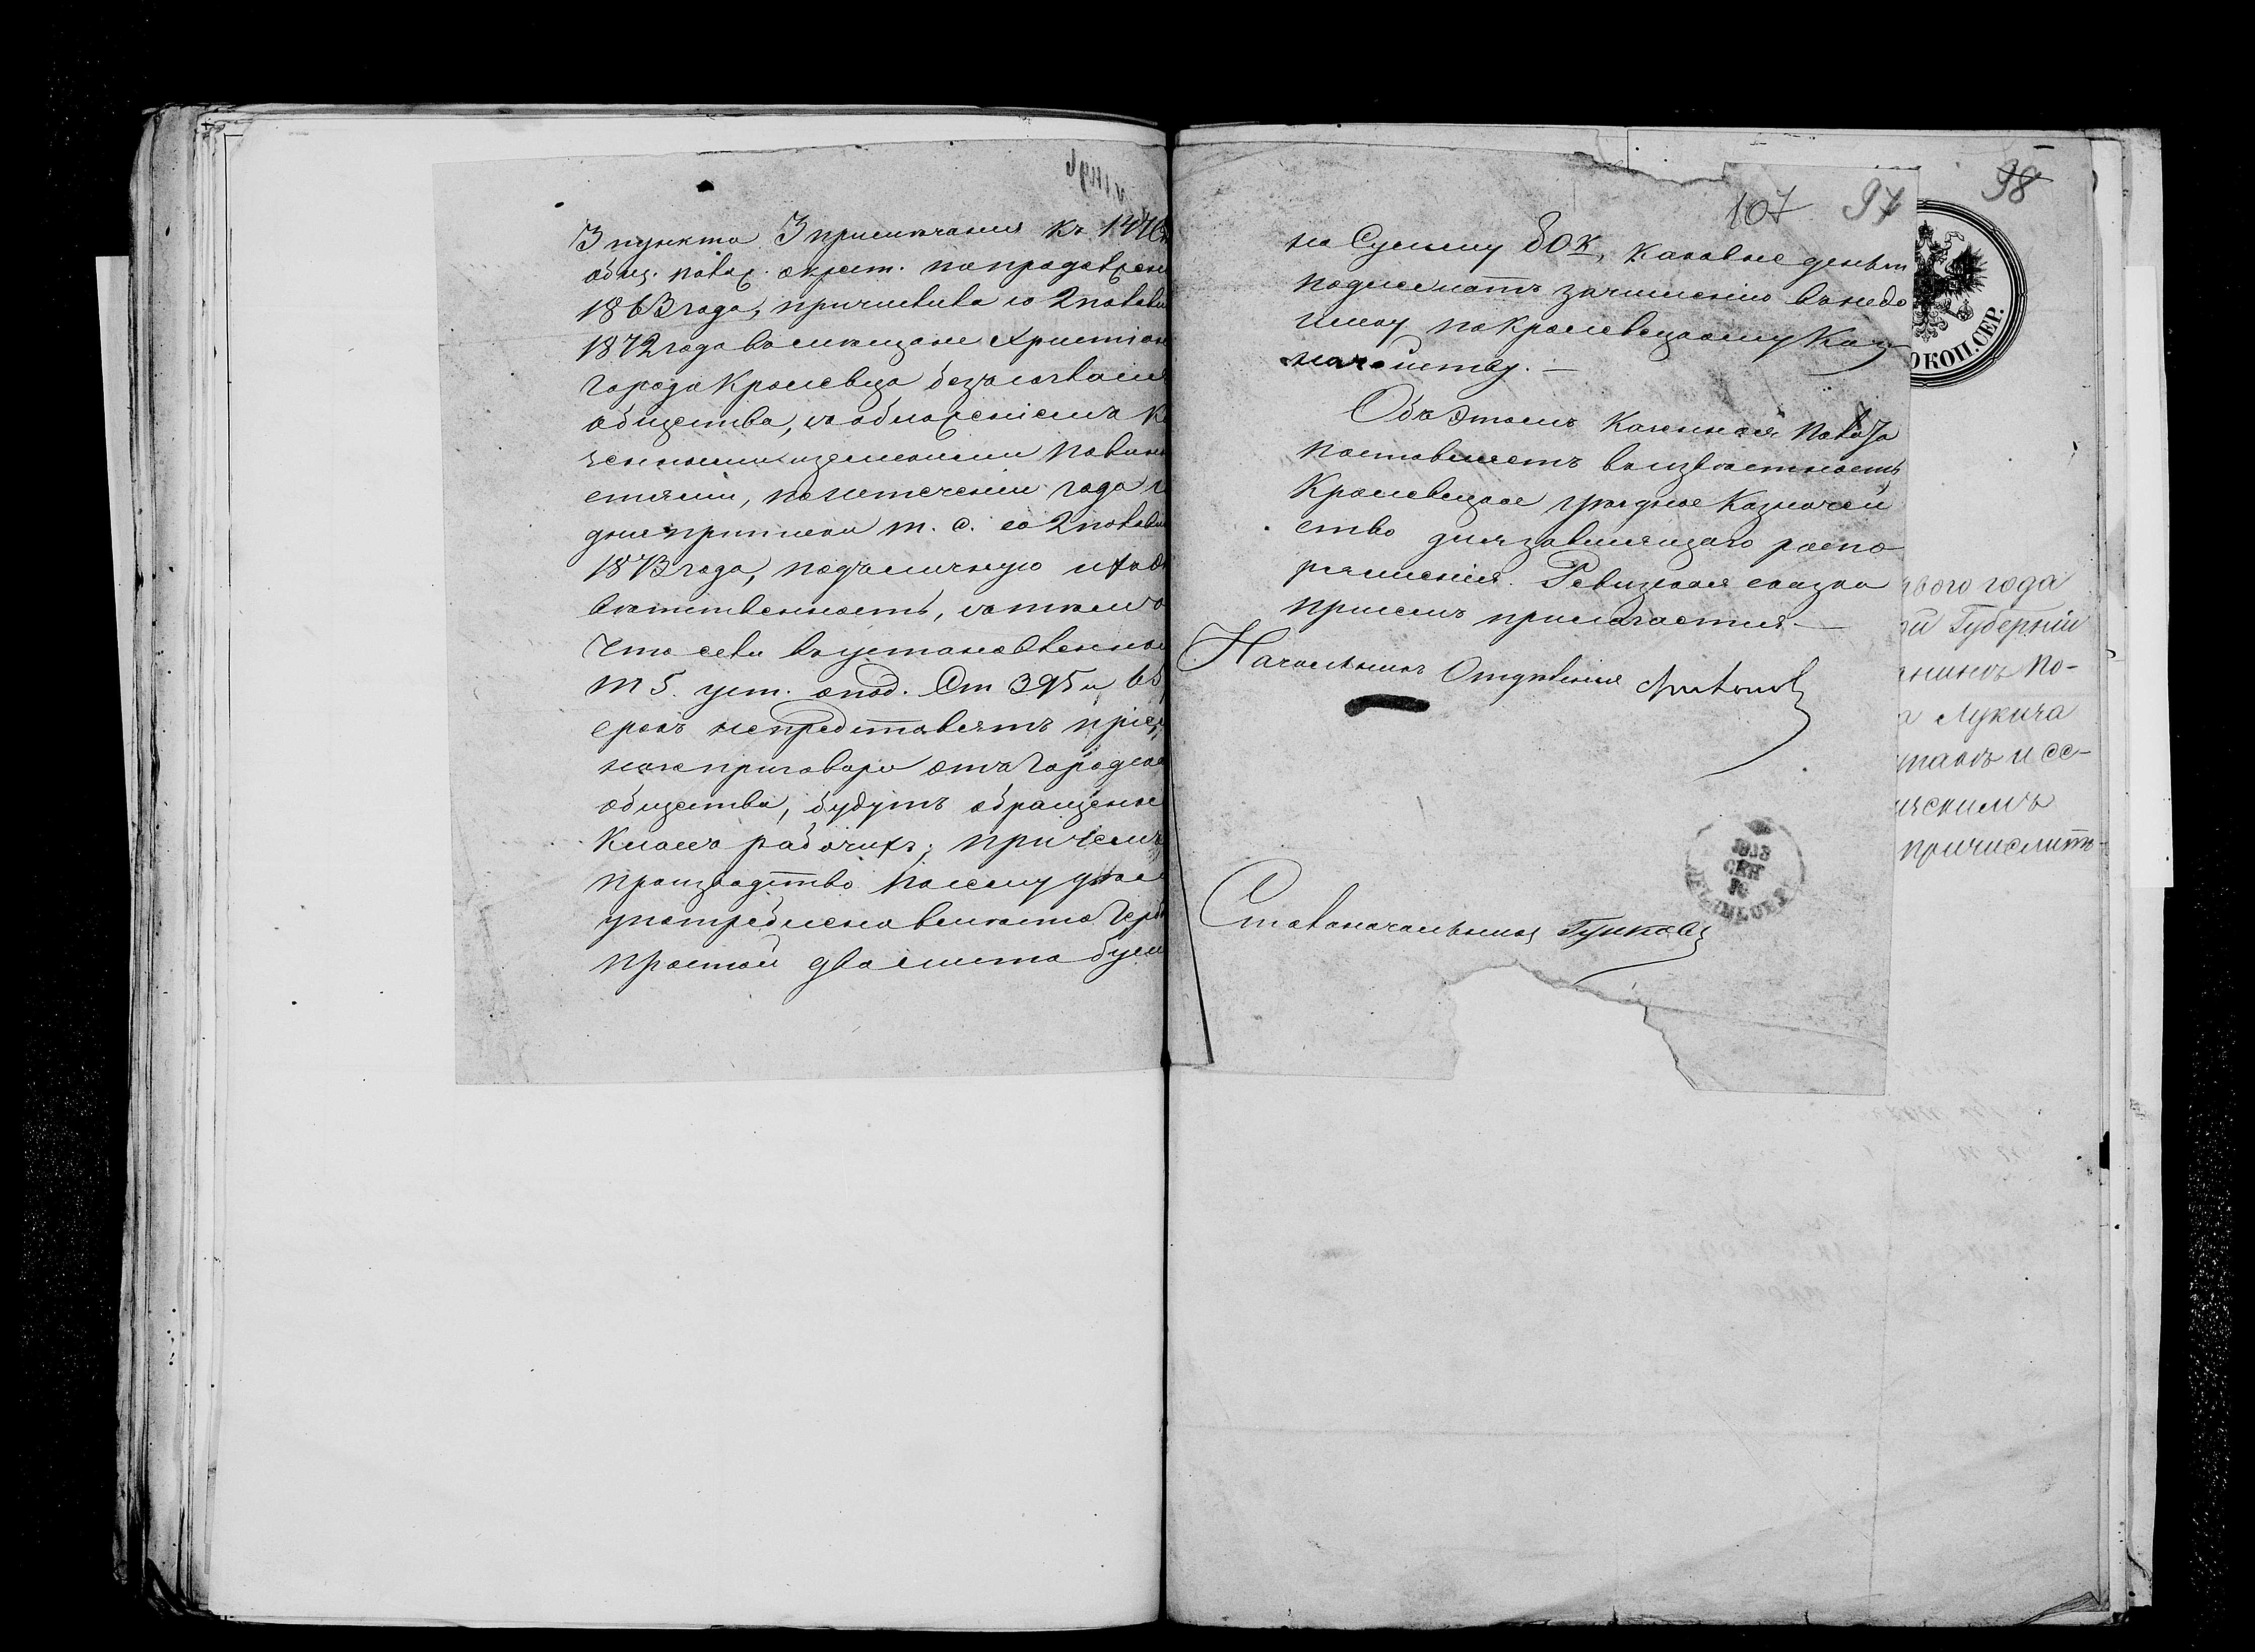 3 пункта 3 примечанія къ 1476
общ. полож. о крест. по продолжен.
1863 года, причислила со 2 полови
1872 года въ мѣщане Христіане
города Кролевца безъ согласія
общества, съ обложеніемъ ка
зенными и земскими повинно
стями, по истеченіи года со
дня приписки т. е. со 2 полови
1873 года, подъ личную ихъ от
вѣтственность, съ тѣмъ
что если въ установленный
т 5. уст. о под. Ст 395 и
срокъ не представятъ пріем
наго приговора отъ Городскаго
общества, будутъ обращены
класъ рабочихъ; причемъ
производство по сему дѣлу
употреблено вмѣсто Герб
простой два листа бумаги
107 97 98
на Сумму 80 К, каковые деньги
подлежатъ зачисленію въ недо
имку по Кролевецкому Каз
начейству. —
Объ этомъ Казенная Палата
поставляетъ въ извѣстность
Кролевецкое уѣздное Казначей
ство для зависящаго распо
ряженія. Ревизская сказка
при семъ прилагается. —
Начальникъ Отдѣленія
Столоначальникъ
КОП. СЕР.
1873
СЕН
го года
Губерніи
по-
Лукича
и се-
причислить